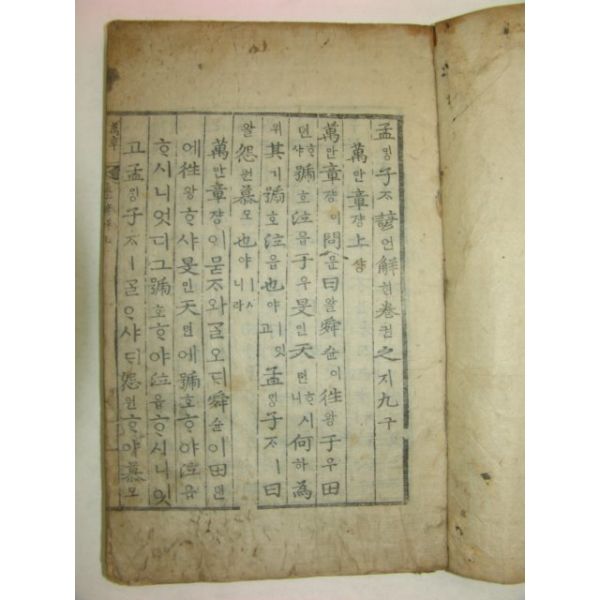 孟ᄆᆡᆼ子ᄌᆞ諺언解ᄒᆡ卷권之지九구
萬만章쟝上샹
萬만章쟝이問문曰왈舜슌이往왕于우田뎐
ᄒᆞ샤號호泣읍于우旻민天텬ᄒᆞ시니何하爲
위其기號호泣읍也야ㅣ잇고孟ᄆᆡᆼ子ᄌᆞㅣ曰
왈怨원慕모也야ㅣ시니라
萬만章쟝이묻ᄌᆞ와ᄀᆞᆯ오ᄃᆡ舜슌이田뎐
에往왕ᄒᆞ샤旻민天텬에號호ᄒᆞ야泣읍
ᄒᆞ시니엇디그號호ᄒᆞ야泣읍ᄒᆞ시니잇
고孟ᄆᆡᆼ子ᄌᆞㅣᄀᆞᆯᄋᆞ샤ᄃᆡ怨원ᄒᆞ야慕모
萬章